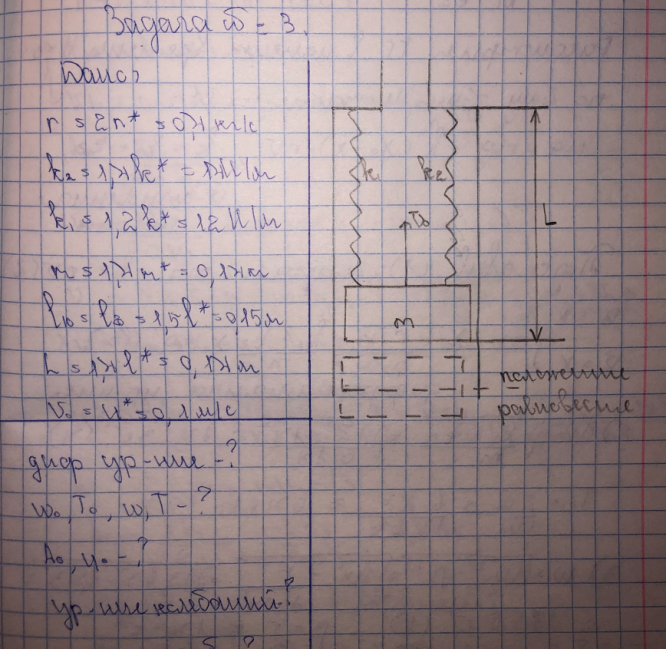 Задача № 3.
Дано:
r = 2r* = 0,4 кг/с
k₂ = 1,4k* = 14 Н/м
k₁ = 1,2k* = 12 Н/м
m = 1,4m* = 0,14 кг
l₁₀ = l₂₀ = 1,5l* = 0,15 м
L = 1,4l* = 0,14 м
V₀ = u* = 0,1 м/с
диф ур-ние - ?
ω₀, T₀, ω, T - ?
A₀, φ₀ - ?
ур-ние колебаний - ?
k₁
k₂
L
m
положение
равновесия